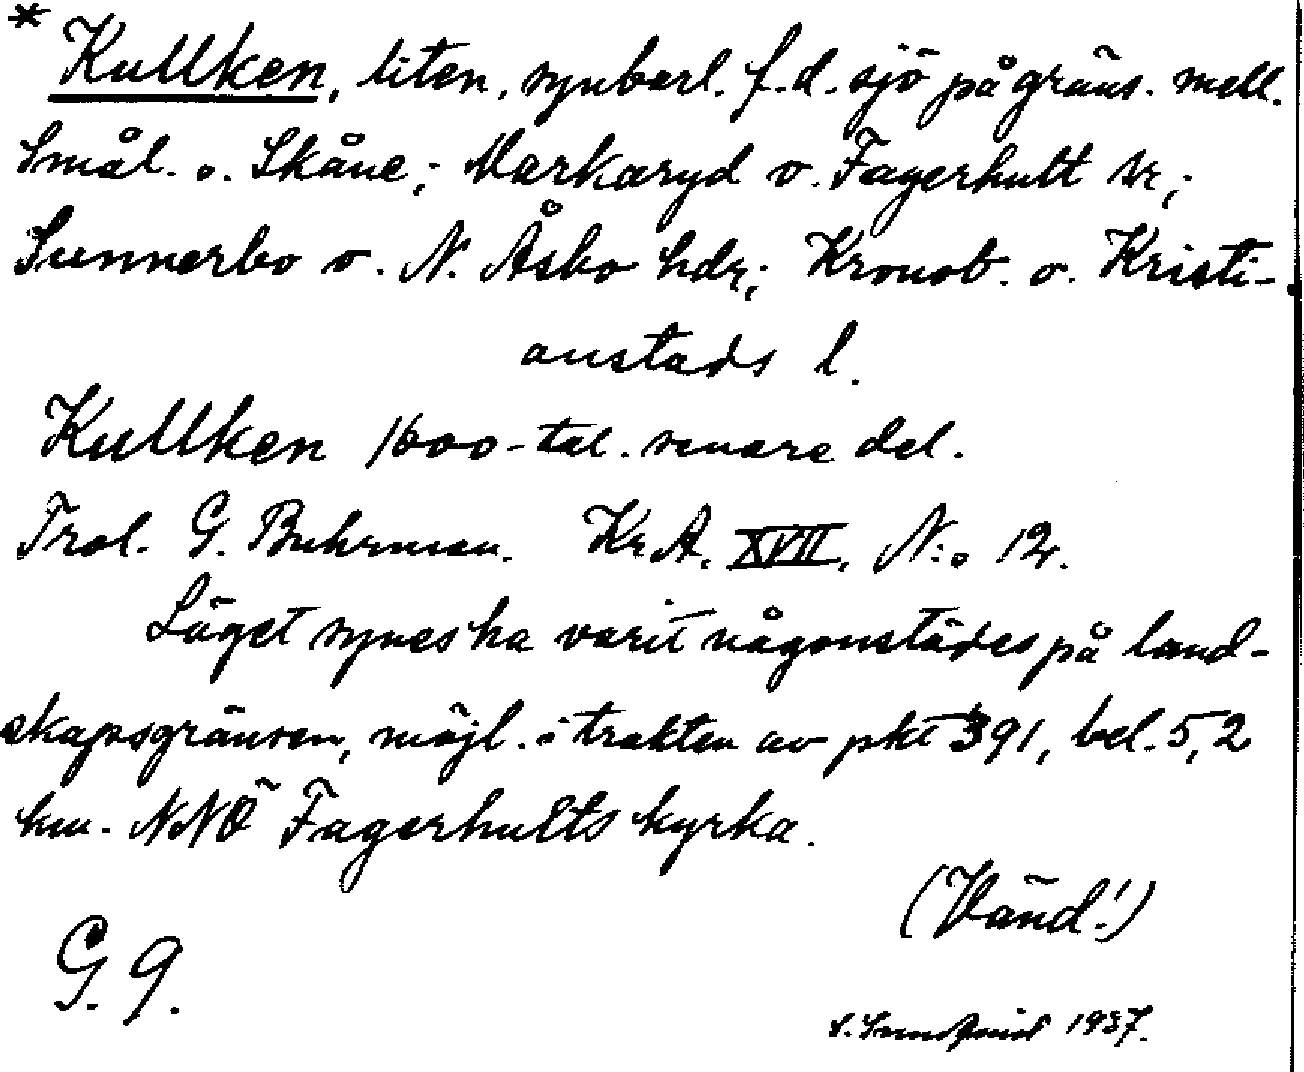 * Kullken, liten, synbarl. f.d. sjö på gräns. mell.
Smål. o. Skåne; Markaryd o. Fagerhult sr;
Sunnerbo o. N. Åsbo hdr; Kronob. o. Kristi-
anstads l.
Kullken 1600-tal. senare del.
Trol. G. Buhrman. Kr.A. XVII. N:o 12.
Läget synes ha varit någonstädes på land-
skapsgränsen, möjl. i trakten av pkt 391, bel. 5,2
km. NNÖ Fagerhults kyrka.
(Vänd!)
G. 9.
S. Sundqvist 1937.